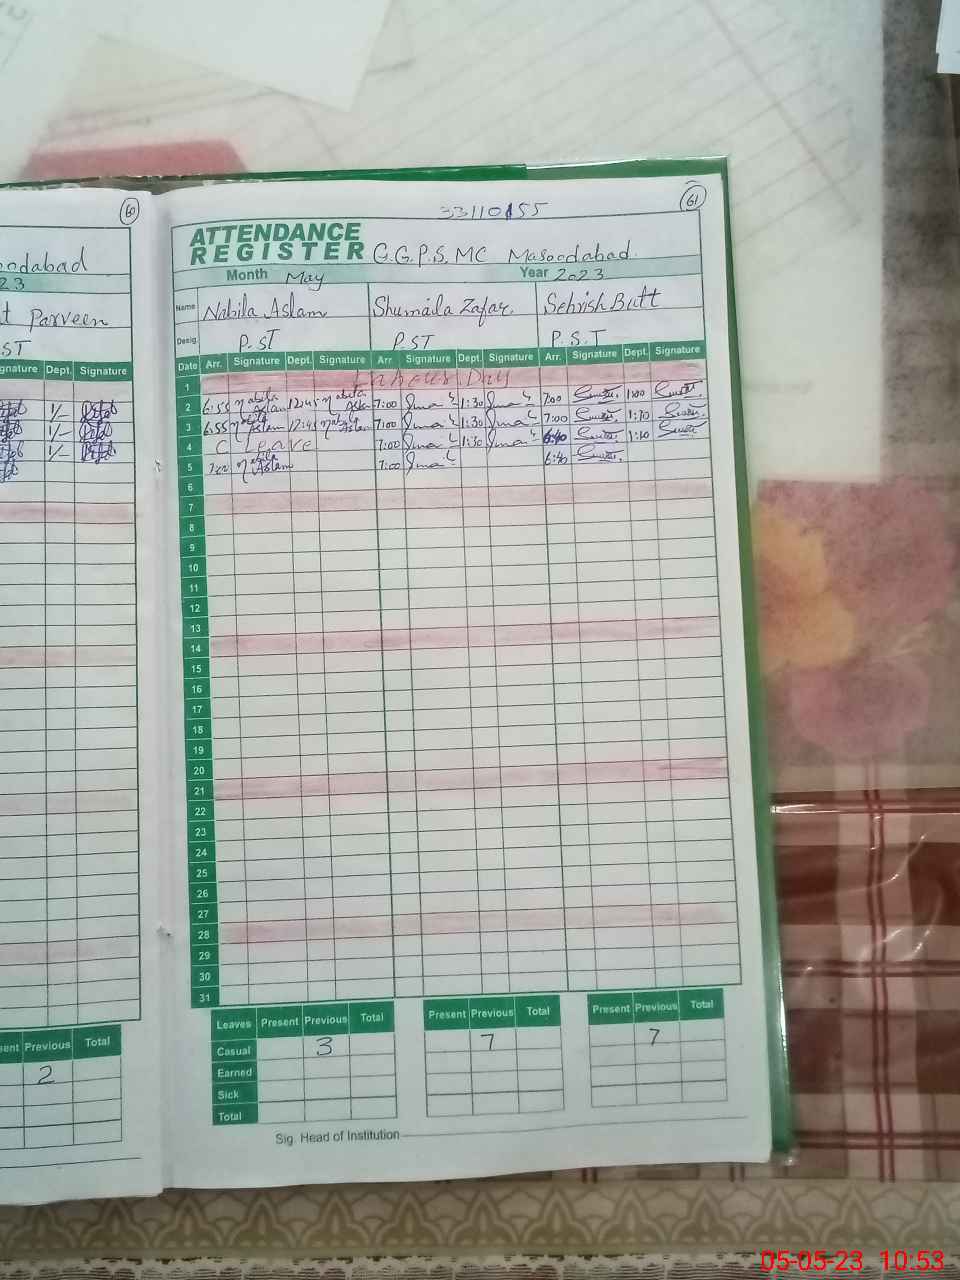 60
oodabad
23
t Parveen
ST
gnature Dept. Signature
1/-
1/-
1/-
sent Previous Total
2
33110155
61
ATTENDANCE
REGISTER G.G.P.S. MC Masoodabad.
Month May Year 2023
Name Nabila Aslam Shumaila Zafar. Sehrish Butt
Desig. P.ST P.ST P.S.T
Date Arr. Signature Dept. Signature Arr. Signature Dept. Signature Arr. Signature Dept. Signature
1 Labour Day
2 6:55 Nabila Aslam 12:45 Nabila Aslam 7:00 1:30 7:00 1:00
3 6:55 Nabila Aslam 12:45 Nabila Aslam 7:00 1:30 7:00 1:30
4 C Leave 7:00 1:30 6:40 1:30
5 7:00 Nabila Aslam 7:00 6:40
6
7
8
9
10
11
12
13
14
15
16
17
18
19
20
21
22
23
24
25
26
27
28
29
30
31
Leaves Present Previous Total Present Previous Total Present Previous Total
Casual 3 7 7
Earned
Sick
Total
Sig. Head of Institution
05-05-23 10:53